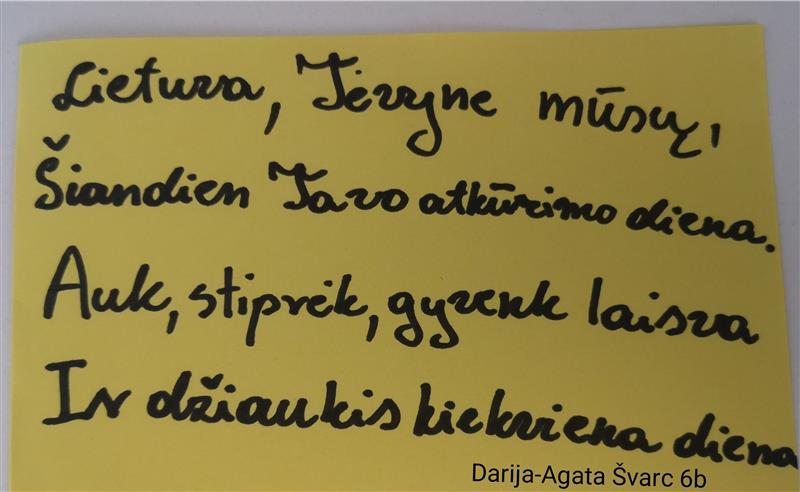 Lietuva, Tėvyne mūsų,
Šiandien Tavo atkūrimo diena.
Auk, stiprėk, gyvenk laisva
Ir džiaukis kiekviena diena
Darija-Agata Švarc 6b